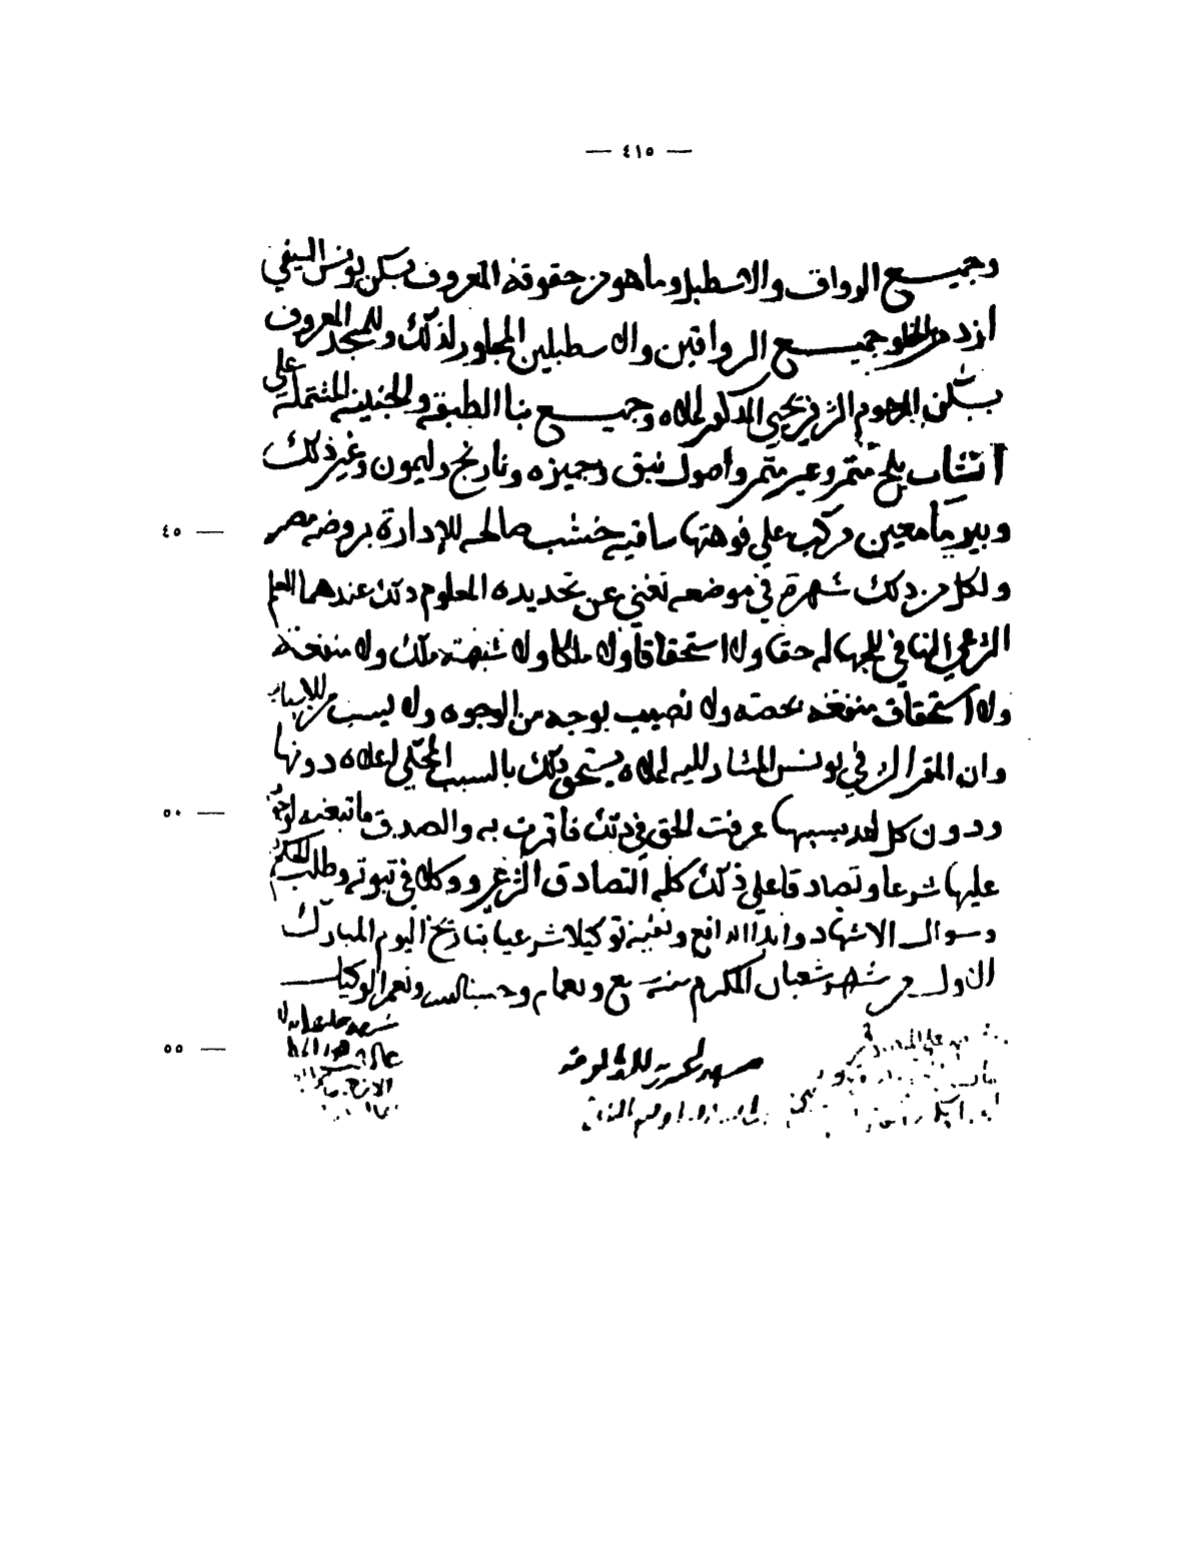 — ٤١٥ —
وجميع الرواق والاسطبل وما هو من حقوقه المعروف بسكن يونس السيفي
ازدمر وجميع الرواقين والاسطبلين المجاور لذلك وللمسجد المعروف
بسكن المرحوم الزيني يحيى المذكور اعلاه وجميع بنا الطبقه والجنينه المشتمله على
انشاب بلح مثمر وغير مثمر واصول نبق وجميزه ونارنج وليمون وغير ذلك
٤٥ — وبير ما معين مركب على فوهتها ساقيه خشب صالحه للادارة بروضه مصر
ولكل من ذلك شهرة في موضعه تغني عن تحديده المعلوم ذلك عندهما العلم
الشرعي النافي للجهاله حقا ولا استحقاقا ولا ملكا ولا شبهة ملك ولا منفعة
ولا استحقاق منفعه بحصه ولا نصيب بوجه من الوجوه ولا بسبب من الاسباب
وان المقر الزيني يونس المشار اليه اعلاه يستحق ذلك بالسبب المحكي اعلاه دونها
٥٠ — ودون كل احد بسببها عرفت الحق في ذلك فاقرت به والصدق فاتبعته لوجوبه
عليها شرعا وتصادقا على ذلك كله التصادق الشرعي ووكلا في ثبوته وطلب الحكم
وسوال الاشهاد وابدا الدافع ونفيه توكيلا شرعيا بتاريخ اليوم المبارك
الاول من شهر شعبان المكرم سنة وحسبنا الله ونعم الوكيل
٥٥ —